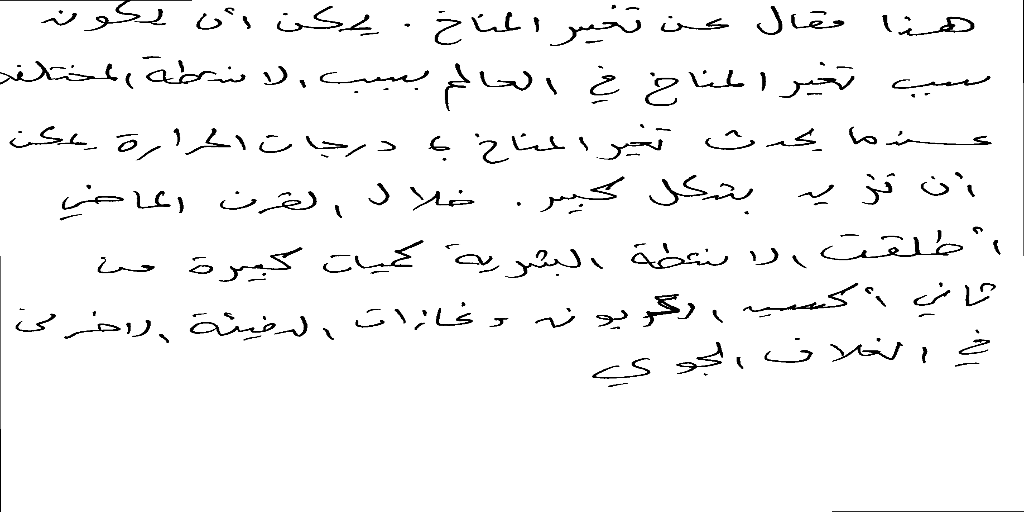 هذا مقال عن تغير المناخ . يمكن أن يكون
سبب تغير المناخ في العالم بسبب الانشطة المختلفة
عندما يحدث تغير المناخ ، درجات الحرارة يمكن
أن تزيد بشكل كبير . خلال القرن الماضي
أطلقت الانشطة البشرية كميات كبيرة من
ثاني أكسيد الكربون و غازات الدفيئة الاخرى
في الغلاف الجوي